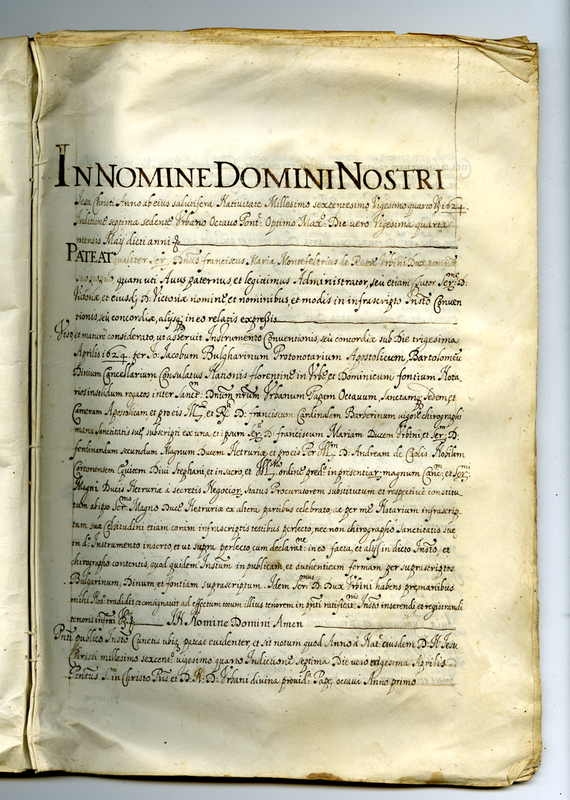 IN NOMINE DOMINI NOSTRI
Jesu Christi Anno ab eius salutifera Nativitate Millesimo sexcentesimo Vigesimo quarto 1624
Indictione septima sedente Urbano Octavo Pont. Optimo Max. Die vero Vigesima quarta
mensis Maij dicti anni
PATEAT qualiter Ser. Dnus franciscus Maria Montefeltrius de Ruere Urbini Dux
quam uti Avus paternus et legitimus Administrator, seu etiam Tutor Ser. D.
Victoriæ et eiusd. D. Victoriæ nomine et nominibus et modis in infrascripto Insto Conven
tionis, seu concordiæ, alijsq; in eo relatis expressis
Viso, et mature considerato, ut asseruit Instrumento Conventionis, seu concordiæ sub Die trigesima
Aprilis 1624. per Jo: Jacobum Bulgharinum Protonotarium Apostolicum, Bartolomeu
Dinum Cancellarium Consulatus Nationis florentine in Urbe, et Dominicum fontium Nota
rios insolidum rogatos inter Sanct. Dnum nrum Urbanum Papam Octavum, Sanctamq; Sedem, et
Cameram Apostolicam et pro eis et D: franciscum Cardinalem Barberinum vigore chirographi
manu Sanctitatis suæ subscripti ex una, et ipsum Ser. D. franciscum Mariam Ducem Urbini, et Ser. D:
ferdinandum secundum Magnum Ducem Hetruriæ et pro eis Per D: Andream de Ciolis Nobilem
Cortonensem Equitem Divi Stephani, et in sacro, et ordine pred. in presentiar. magnum Canc. et Ser.mi
Magni Ducis Hetruriæ a secretis Negocior. Status Procuratorem substitutum et respective constitu
tum ab ipso Ser.mo Magno Duce Hetruriæ ex altera partibus celebrato, ac per me Notarium infrascrip
tum suæ Celsitudini etiam coram infrascriptis testibus perlecto, nec non chirographo Sanctitatis suæ
in d. Instrumento inserto, et ut supra perlecto, cum declarat.ne in eo facta, et alijs in dicto Insto, et
chirographo contentis, quod quidem Instum in publicam, et authenticam formam per suprascriptos
Bulgarinum, Dinum et fontiam suprascriptum. Idem Ser.mus D. Dux Urbini habens præ manibus
mihi Not. tradidit et consignavit ad effectum totum illius tenorem in pnti ratificat.nis Insto inserendi et registrandi
tenoris infra In Nomine Domini Amen
Pnti publico Insto Cunctis ubiq; pateat evidenter, et sit notum quod Anno à Nat. eiusdem D. N. Jesu
Christi millesimo sexcent. vigesimo quarto Indictione septima Die vero trigesima Aprilis
Pontus S.mi in Christo Pris et D. N. D. Urbani divina provid.a Papæ octavi Anno primo